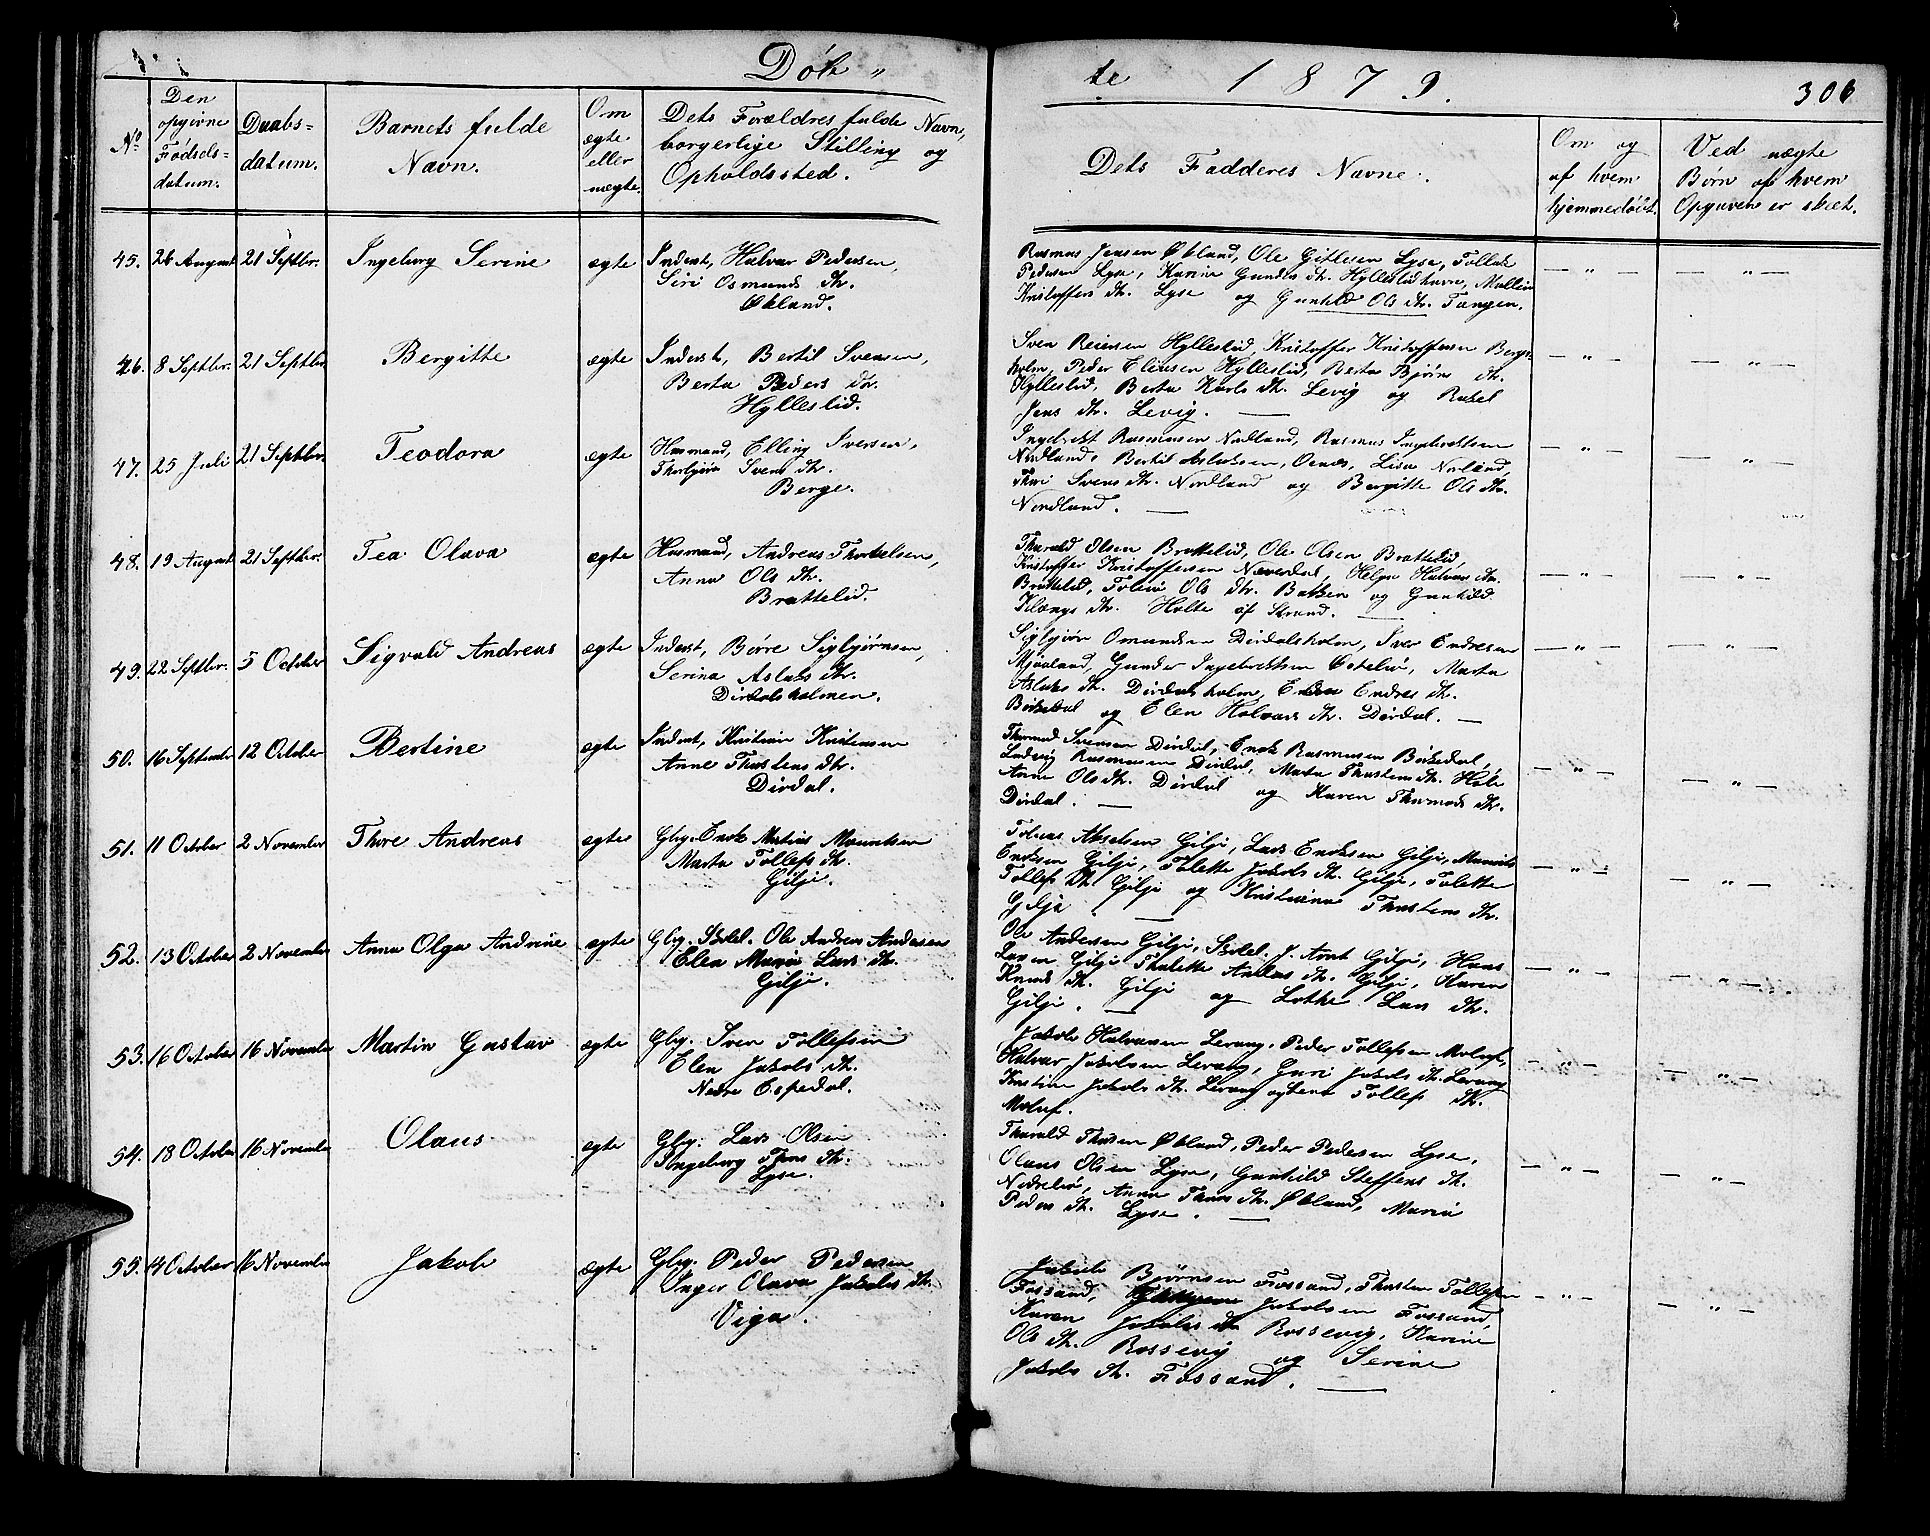 Døb „
te 1879.
306
No
Den opgivne Fødsels= datum.
Daabs= datum.
Barnets fulde Navn.
Om ægte eller uægte.
Dets Forældres fulde Navn, borgerlige Stilling og Opholdssted.
Dets Fadderes Navne.
Om og af hvem hjemmedøbt.
Ved uægte Børn af hvem Opgaven er skeet.
45. 26 August 21 Septbr. Ingeborg Serine ægte Inderst, Halvar Pedersen,
Siri Osmunds dtr.
Økland.
Rasmus Jensen Økland, Ole Gitlesen Lyse, Tollak
Pedersen Lyse, Karine Gunders dtr. Hylleslidhavn, Mallin
Kristoffers dtr. Lyse og Gunhild Ols dtr. Tangen.
— „ — — „ —
46. 8 Septbr. 21 Septbr Bergitte ægte Inderst, Bertil Svensen,
Berta Peders dtr.
Hylleslid.
Sven Reiersen Hylleslid, Kristoffer Kristoffersen Bergs-
holm, Peder Eliasen Hylleslid, Berta Bjørns dtr.
Hylleslid, Berta Karls dtr. Levig og Rakel
Jens dtr. Levig. —
— „ — — „ —
47. 25 Juli 21 Septbr. Teodora ægte Husmand, Elling Iversen,
Thorbjør Svens dtr.
Berge.
Ingebrikt Rasmusen Nordland, Rasmus Ingebriktsen
Nordland, Bertil Aslaksen, Lisa Norland,
Thori Svens dtr. Nordland og Bergitte Ols dtr.
Nordland. —
— „ — — „ —
48. 19 August 21 Septbr. Tea Olava ægte Husmand, Andreas Thorkelsen,
Anna Ols dtr.
Brattelid.
Tharald Olsen Brattelid, Ole Olsen Brattelid,
Kristoffer Kristoffersen Næverdal, Helga Halvars dtr.
Brattelid, Ols dtr. Bakken og Gunhild
dtr. Holte af Strand. —
— „ — — „ —
49. 22 Septbr. 5 October Sigvald Andreas ægte Inderst, Børre Sigbjørnsen,
Serina Aslaks dtr.
Dirdalsholmen.
Sigbjørn Omundsen Dirdalsholm, Iver Endresen
Mjøaland, Gunder Ingebriktsen Eikelid, Marta
Aslaks dtr. Dirdalsholm, Endres dtr.
Birkedal og Elen Halvars dtr. Dirdal. —
— „ — — „ —
50. 16 September 12 October Bertine ægte Inderst, Kristian Kristensen
Anne Thorstens dtr.
Dirdal.
Thormod Svensen Dirdal, Enok Rasmusen Birkedal,
Ludvig Rasmusen Dirdal, Marta Thorstens dtr. Hole
Anna Ols dtr. Dirdal og Karen Thormods dtr.
Dirdal. —
— „ — — „ —
51. 11 October 2 November Thore Andreas ægte Gbrg. Enok Martius Mauritsen
Marta Tollefs dtr.
Gilje.
Tobias Akselsen Gilje, Lars Eriksen Gilje, Maurits
Eriksen Gilje, Tolette Jakobs dtr. Gilje, Tolette
Tollefs dtr. Gilje og Kristiane Thorstens dtr.
Gilje. —
— „ — — „ —
52. 13 October 2 November Anna Olga Andrine ægte Gbrg. Skolel. Ole Andreas Andersen
Elen Maria Lars dtr.
Gilje.
Ole Andersen Gilje, Skolel. J. Arnt Gilje, Hans
Larsen Gilje Tholette Anders dtr. Gilje, Karen
Knuds dtr. Gilje og Lotte Lars dtr.
Gilje. —
— „ — — „ —
53. 16 October 16 November Martin Gustav ægte Gbrg. Sven Tollefsen
Elen Jakobs dtr.
Nedre Espedal.
Jakob Halvarsen Lerang, Peder Tollefsen Molaf,
Halvar Jakobsen Lerang, Guri Jakobs dtr. Lerang
Kristine Jakobs dtr. Lerang og Lene Tollefs dtr.
Molaf.
— „ — — „ —
54. 18 October 16 November Olaus ægte Gbrg. Lars Olsen
Ingeborg Thors dtr.
Lyse.
Tharald Thorsen Økland, Peder Pedersen Lyse,
Olaus Olsen Lyse, Gunhild Steffens dtr.
Nedrebø, Anna Thors dtr. Økland, Maria
Peders dtr. Lyse. —
— „ — — „ —
55. 14 October 16 November Jakob ægte Gbrg. Peder Pedersen
Inger Olava Jakobs dtr.
Viga.
Jakob Bjørnsen Fossand, Thorsten Tollefsen
Fossand, Jakobsen Fossand,
Karen Jakobs dtr Rossevig, Karine
Ols dtr. Rossevig og Serine
Jakobs dtr. Fossand. —
— „ — — „ —